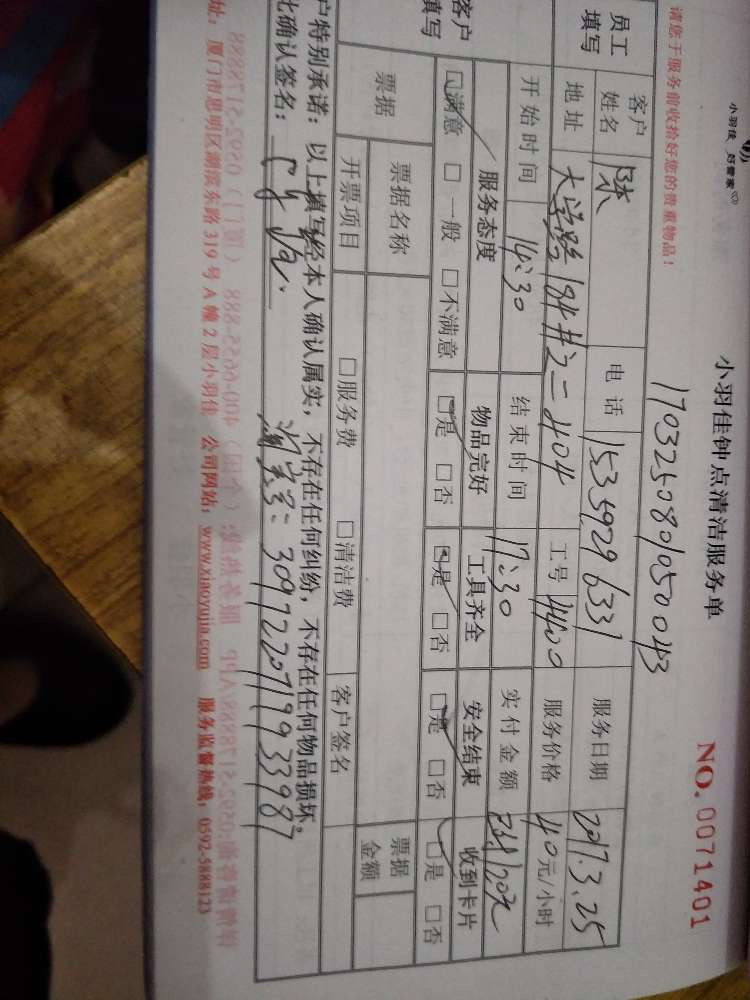 小羽佳 好管家
小羽佳钟点清洁服务单
NO. 0071401
17032508010500043
请您于服务前收拾好您的贵重物品！
员工填写
客户姓名 陈 电话 15359296331 服务日期 2017.3.25
地址 大学路184#之二404 工号 服务价格 40元/小时
开始时间 14:30 结束时间 17:30 实付金额 120元
客户填写
服务态度 物品完好 工具齐全 安全结束 收到卡片
☑满意 □一般 □不满意 ☑是 □否 ☑是 □否 ☑是 □否 ☑是 □否
票据 票据名称 票据金额
开票项目 □服务费 □清洁费 客户签名
户特别承诺：以上填写经本人确认属实，不存在任何纠纷，不存在任何物品损坏。
比确认签名： 淘宝号：3097220719933987
址：厦门市思明区湖滨东路319号A幢2层小羽佳 公司网站：www.xiaoyujia.com 服务监督热线：0592-5888123